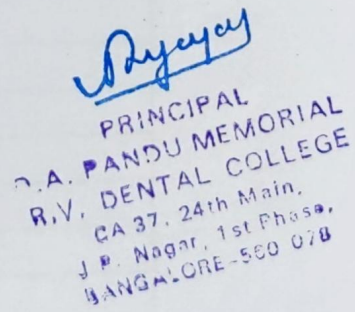 PRINCIPAL
D.A. PANDU MEMORIAL
R.V. DENTAL COLLEGE
CA 37, 24th Main,
J P. Nagar, 1st Phase,
BANGALORE-560 078